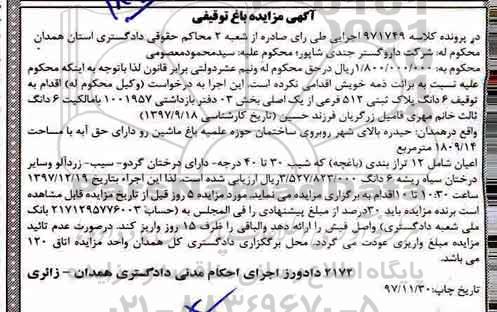 آگهی مزایده باغ توقیفی
در پرونده کلاسه ۹۷۱۷۴۹ اجرایی طی رای صادره از شعبه ۲ محاکم حقوقی دادگستری استان همدان
محکوم له: شرکت داروگستر جندی شاپور؛ محکوم علیه: سیدمحمودمعصومی
محکوم به: ۱/۸۰۰/۰۰۰/۰۰۰ریال درحق محکوم له ونیم عشردولتی برابر قانون لذا باتوجه به اینکه محکوم
علیه نسبت به برائت ذمه خویش اقدامی نکرده است. این اجرا به درخواست (وکیل محکوم له) اقدام به
توقیف ۶ دانگ پلاک ثبتی ۵۱۲ فرعی از یک اصلی بخش ۰۳ دفتر بازداشتی ۱۰۰۱۹۵۷ بامالکیت ۶ دانگ
ثالث خانم مهری فامیل زرگریان فرزند حسین (تاریخ کارشناسی ۱۳۹۷/۹/۱۸)
واقع درهمدان: حیدره بالای شهر روبروی ساختمان حوزه علمیه باغ ماشین رو دارای حق آبه با مساحت
۱۸۰۹/۱۴ مترمربع
اعیان شامل ۱۲ تراز بندی (باغچه) که شیب ۳۰ تا ۴۰ درجه- دارای درختان گردو- سیب- زردآلو وسایر
درختان سیاه ریشه ۶ دانگ ۳/۵۲۷/۸۲۳/۰۰۰ریال ارزیابی شده است. لذا این اجراء بتاریخ ۱۳۹۷/۱۲/۱۹
ساعت ۱۰:۳۰ تا ۱۰ اقدام به برگزاری مزایده می نماید. مورد مزایده ۵ روز قبل از تاریخ مزایده قابل مشاهده
است برنده مزایده باید ۳۰درصد از مبلغ پیشنهادی را فی المجلس به (حساب ۲۱۷۱۲۹۵۷۷۶۰۰۳ بانک
ملی شعبه دادگستری) واصل فیش را ارائه دهد والباقی را ظرف ۱۵ روز واریز کند. درصورت عدم تائید
مزایده مبلغ واریزی عودت می گردد. محل برگزاری دادگستری کل همدان واحد مزایده اتاق ۱۲۰
می باشد.
۲۱۷۲ دادورز اجرای احکام مدنی دادگستری همدان - زائری
تاریخ چاپ: ۹۷/۱۱/۳۰